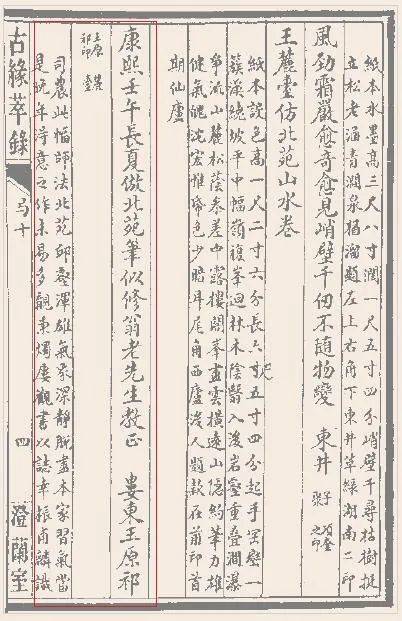 紙本水墨高三尺八寸濶一尺五寸四分峭壁千尋枯樹挺
立松老涵青潤泉稻溜題左上右角下東井草綠湖南二印
風勁霜嚴愈奇愈見峭壁千仞不隨物變　東井
王麓臺仿北苑山水卷
紙本設色高一尺二寸六分長六尺五寸四分起手層壁一
簇漢繞坡平中幅嶺複峯迴林木陰翳入後岩壑重叠澗瀑
爭流山麓松蔭參差中露樓閣峯盡雲橫遠山隱約筆力雄
健氣魄沈宏惟帋色少暗耳尾角西廬後人題款在前印首
期仙廬
康熙壬午長夏倣北苑筆似修翁老先生教正　婁東王原祁
王原祁印　麓臺
司農此幅師法北苑邱壑渾雄氣象深靜脫盡本家習氣當
是晚年得意之作未易多覯秉燭屢觀書以誌幸振甪麟識
古緣萃錄
卷十
四
澄蘭室